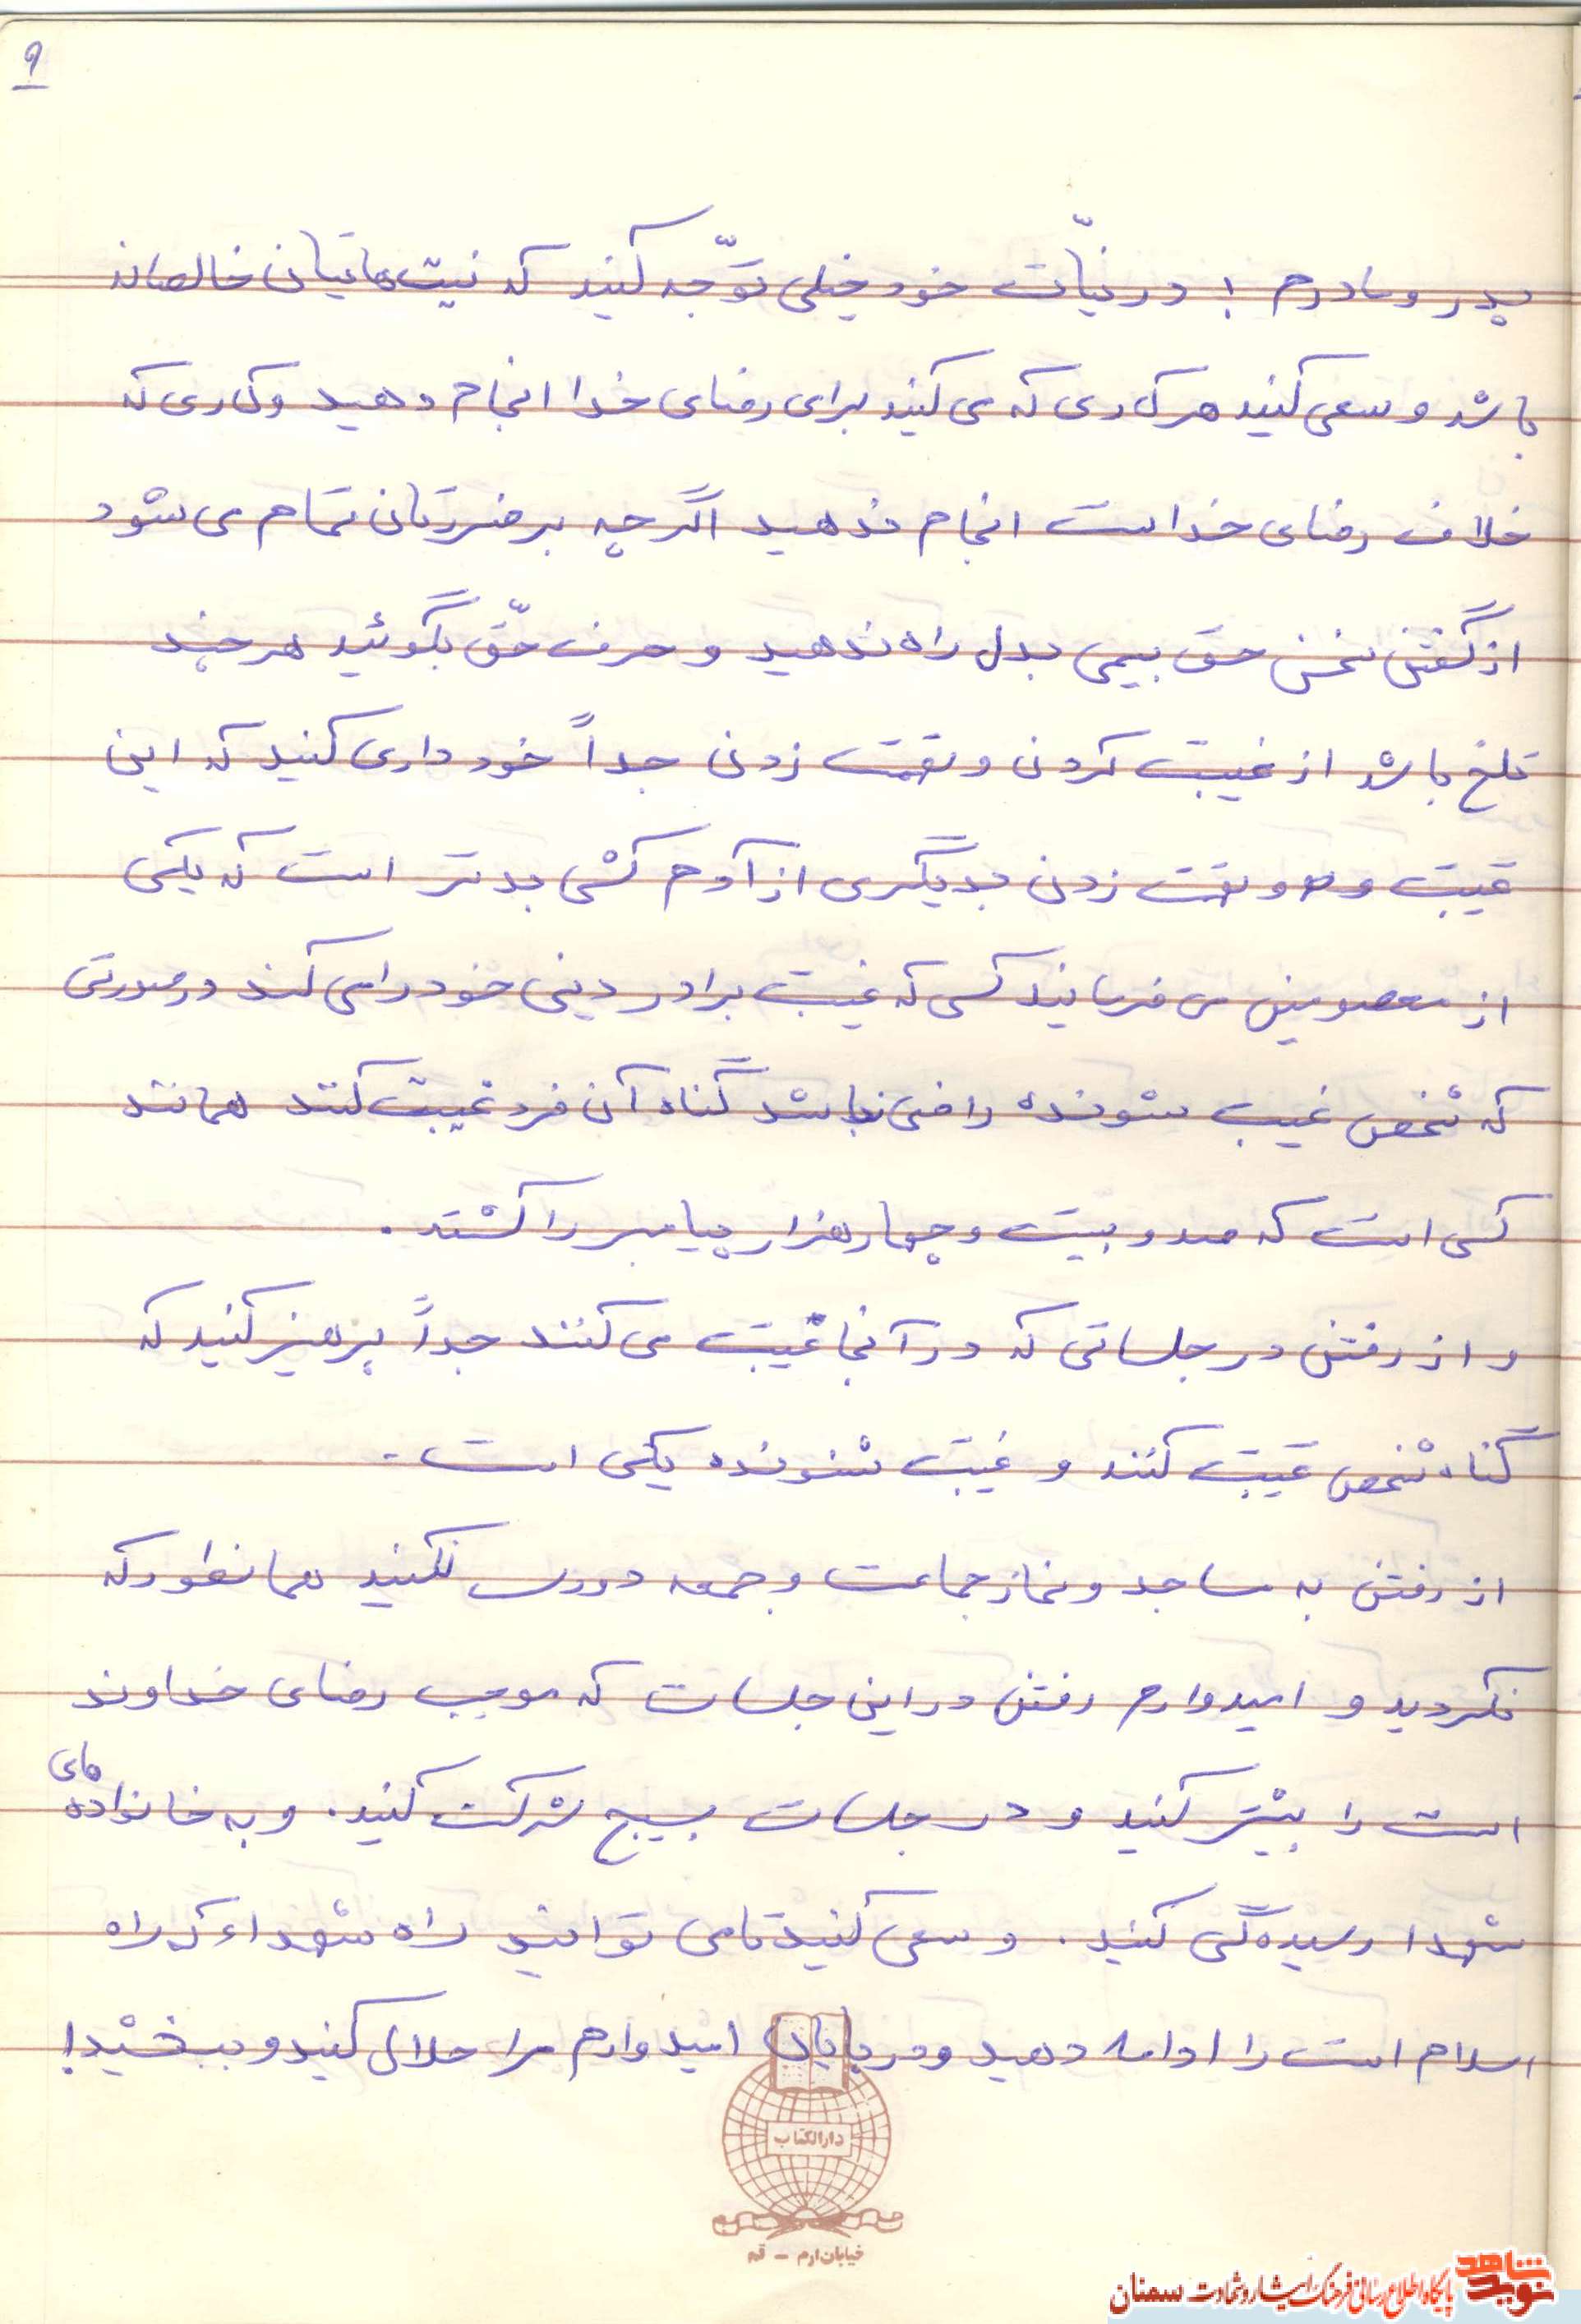 ۹
پدر و مادرم ! در نیّات خود خیلی توّجه کنید که نیت هایتان خالصانه
باشد و سعی کنید هر کاری که می کنید برای رضای خدا انجام دهید و کاری که
خلاف رضای خداست انجام ندهید اگر چه بر ضررتان تمام می شود
از گفتن سخن حق بیمی بدل راه ندهید و حرف حقّ بگوئید هر چند
تلخ باشد از غیبت کردن و تهمت زدن جداً خود داری کنید که این
غیبت و تهمت زدن بدیگری از آدم کشی بدتر است که یکی
از معصومین می فرمایند کسی که غیبت برادر دینی خود را می کند در صورتی
که شخص غیب شونده راضی نباشد گناه آن فرد غیبت کنند همانند
کسی است که صد و بیست و چهار هزار پیامبر را کشته .
و از رفتن در جلساتی که در آنجا غیبت می کنند جداً پرهیز کنید که
گناه شخص غیبت کنند و غیبت شنونده یکی است .
از رفتن به مساجد و نماز جماعت و جمعه دوری نکنید همانطور که
نکردید و امیدوارم رفتن در این جلسات که موجب رضای خداوند
است را بیشتر کنید و در جلسات بسیج شرکت کنید . و به خانواده های
شهدا رسیده گی کنید . و سعی کنید تا می توانید راه شهداء که راه
اسلام است را ادامه دهید و در پایان امیدوارم مرا حلال کنید و ببخشید !
دارالکتاب
خیابان ارم - قم
نوید شاهد
پایگاه اطلاع رسانی فرهنگ ایثار و شهادت سمنان